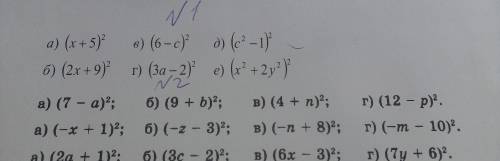 √1
а) (x+5)² в) (6−c)² д) (c²−1)²
б) (2x+9)² г) (3a−2)² е) (x²+2y²)²
√2
а) (7 − a)²; б) (9 + b)²; в) (4 + n)²; г) (12 − p)².
а) (−x + 1)²; б) (−z − 3)²; в) (−n + 8)²; г) (−m − 10)².
а) (2a + 1)²; б) (3c − 2)²; в) (6x − 3)²; г) (7y + 6)².